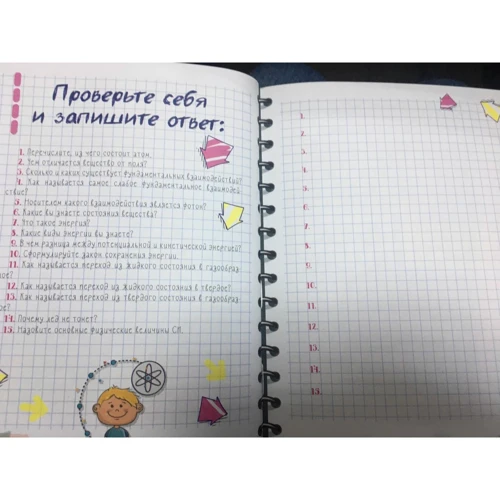 Проверьте себя
и запишите ответ:
1. Перечислите, из чего состоит атом.
2. Чем отличается вещество от поля?
3. Сколько и какие существует фундаментальных взаимодействия?
4. Как называется самое слабое фундаментальное взаимодей-
ствие?
5. Носителем какого взаимодействия является фотон?
6. Какие вы знаете состояния вещества?
7. Что такое энергия?
8. Какие виды энергии вы знаете?
9. В чем разница между потенциальной и кинетической энергией?
10. Сформулируйте закон сохранения энергии.
11. Как называется переход из жидкого состояния в газообраз-
ное?
12. Как называется переход из жидкого состояния в твердое?
13. Как называется переход из твердого состояния в газообраз-
ное?
14. Почему лед не тонет?
15. Назовите основные физические величины СИ.
1.
2.
3.
4.
5.
6.
7.
8.
9.
10.
11.
12.
13.
14.
15.